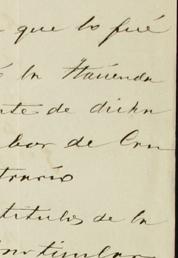 que lo fué
la Hacienda
te de dicha
bor de Can
tració
titulos de la